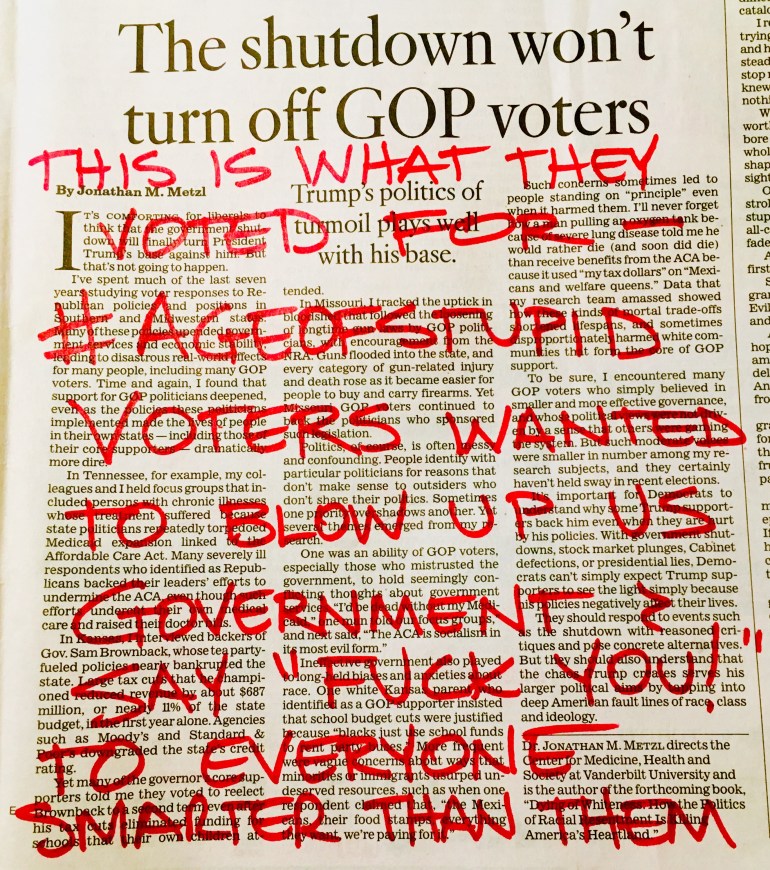 The shutdown won't
turn off GOP voters
THIS IS WHAT THEY
VOTED FOR —
#AGEOFSTUPID
VOTERS WANTED
TO BLOW UP US
GOVERNMENT &
SAY "FUCK YOU!"
TO EVERYONE
SMARTER THAN THEM
By Jonathan M. Metzl
Trump's politics of
turmoil plays well
with his base.
IT'S COMFORTING for liberals to
think that the government shut-
down will finally turn President
Trump's base against him. But
that's not going to happen.
I've spent much of the last seven
years studying voter responses to Re-
publican policies and positions in
Southern and Midwestern states.
Many of these policies
to disastrous effects
for many people, including many GOP
voters. Time and again, I found that
support for GOP politicians deepened,
even as the policies these politicians
implemented made the lives of people
in their own states — including those of
their core supporters — dramatically
more dire.
In Tennessee, for example, my col-
leagues and I held focus groups that in-
cluded persons with chronic illnesses
whose treatment suffered because
state politicians repeatedly torpedoed
Medicaid expansion linked to the
Affordable Care Act. Many severely ill
respondents who identified as Repub-
licans backed their leaders' efforts to
undermine the ACA even though such
efforts medical
care and raised their
In Kansas, I interviewed backers of
Gov. Sam Brownback, whose tea party-
fueled policies nearly bankrupted the
state. Large tax cuts that he champi-
oned reduced revenue by about $687
million, or nearly 11% of the state
budget, in the first year alone. Agencies
such as Moody's and Standard &
Poor's downgraded the state's credit
rating.
Yet many of the governor's core sup-
porters told me they voted to reelect
Brownback to a second term even after
his tax cuts eliminated funding for
schools that their own children at-
tended.
In Missouri, I tracked the uptick in
that followed the loosening
of longtime gun laws by GOP politi-
cians, with encouragement from the
NRA. Guns flooded into the state, and
every category of gun-related injury
and death rose as it became easier for
people to buy and carry firearms. Yet
Missouri GOP voters continued to
back the politicians who sponsored
such legislation.
Politics, of course, is often messy
and confounding. People identify with
particular politicians for reasons that
don't make sense to outsiders who
don't share their politics. Sometimes
one overshadows another. Yet
several emerged from my re-
search.
One was an ability of GOP voters,
especially those who mistrusted the
government, to hold seemingly con-
flicting thoughts about government
services. my Medi-
groups,
and next said, "The ACA is socialism in
its most evil form."
government also played
to long-held biases and anxieties about
race. One white parent who
identified as a GOP supporter insisted
that school budget cuts were justified
because "blacks just use school funds
to rent party buses." More frequent
were vague concerns about ways that
minorities or immigrants usurped un-
deserved resources, such as when one
respondent claimed that "the Mexi-
cans, their food stamps, everything
they want, we're paying for it."
Such concerns sometimes led to
people standing on "principle" even
when it harmed them. I'll never forget
how a man pulling an oxygen tank be-
cause of severe lung disease told me he
would rather die (and soon did die)
than receive benefits from the ACA be-
cause it used "my tax dollars" on "Mexi-
cans and welfare queens." Data that
my research team amassed showed
how these kinds of mortal trade-offs
shortened lifespans, and sometimes
disproportionately harmed white com-
munities that form the core of GOP
support.
To be sure, I encountered many
GOP voters who simply believed in
smaller and more effective governance,
and whose political
a sense that others were gaming
the system. But such
were smaller in number among my re-
search subjects, and they certainly
haven't held sway in recent elections.
It's important for Democrats to
understand why some Trump support-
ers back him even when they are hurt
by his policies. With government shut-
downs, stock market plunges, Cabinet
defections, or presidential lies, Demo-
crats can't simply expect Trump sup-
porters to see the light simply because
his policies negatively affect their lives.
They should respond to events such
as the shutdown with reasoned cri-
tiques and pose concrete alternatives.
But they should also understand that
the chaos Trump creates serves his
larger political aims by tapping into
deep American fault lines of race, class
and ideology.
Dr. JONATHAN M. METZL directs the
Center for Medicine, Health and
Society at Vanderbilt University and
is the author of the forthcoming book,
"Dying of Whiteness: How the Politics
of Racial Resentment Is Killing
America's Heartland."